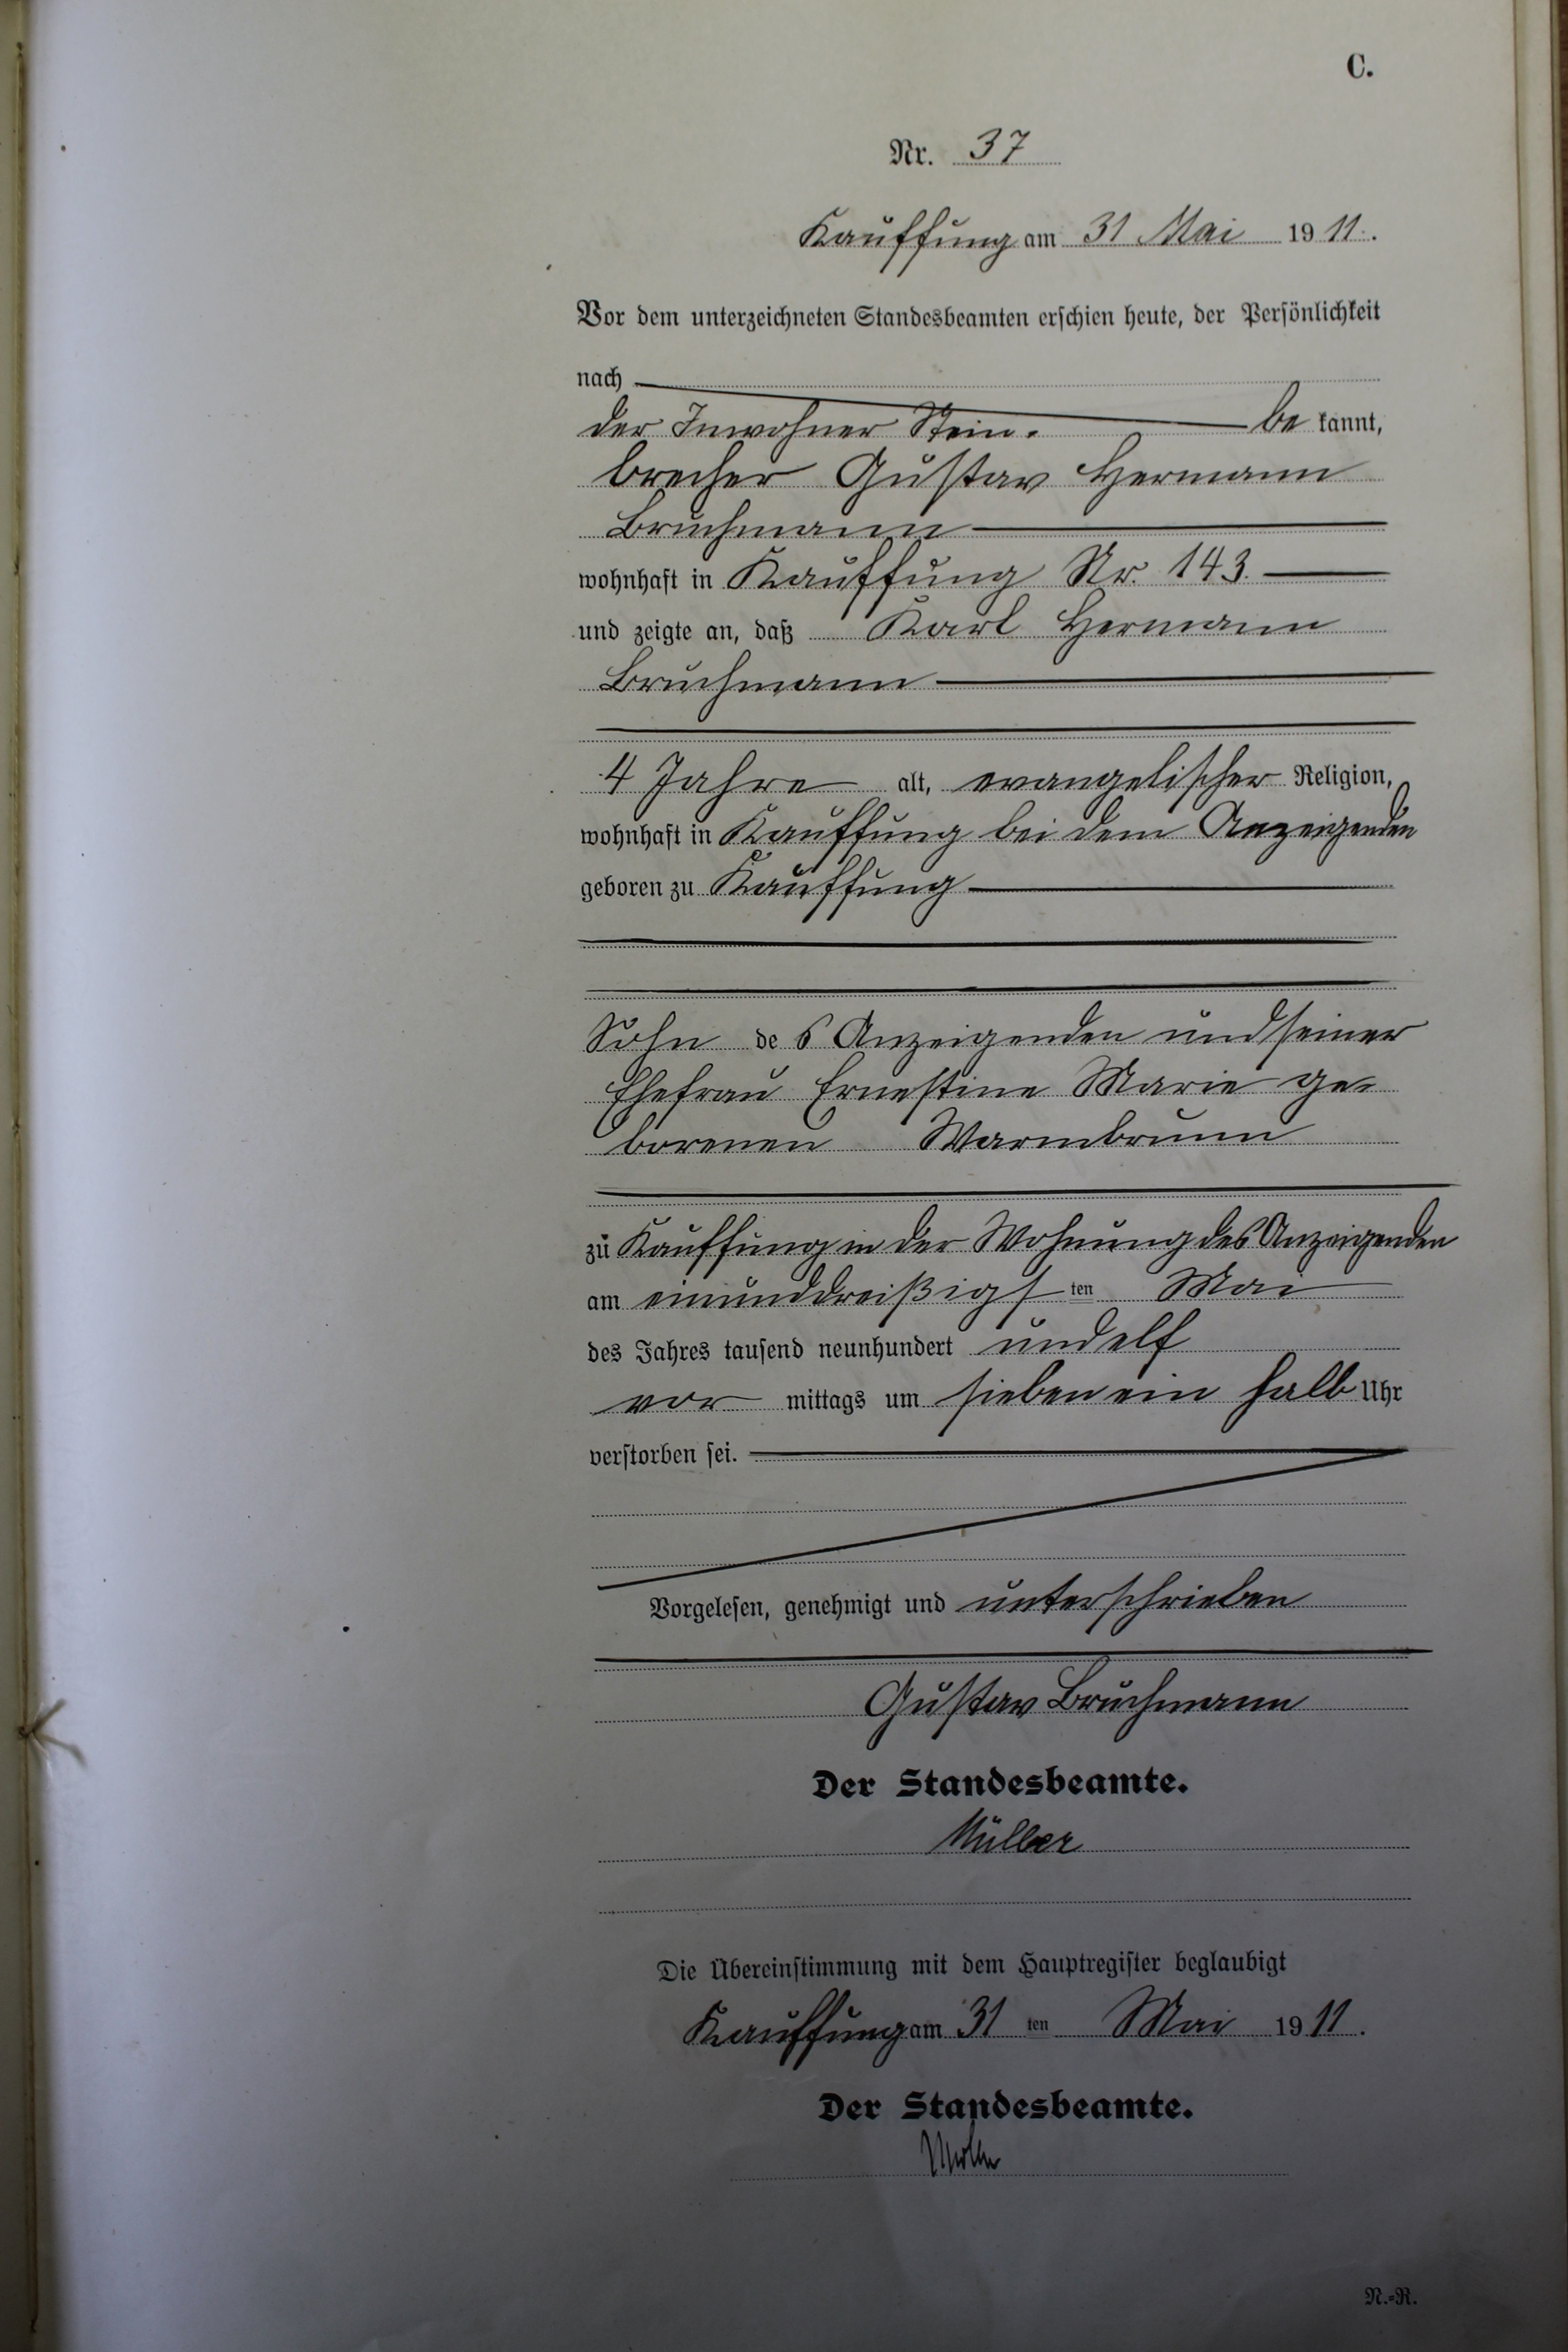 C.
Nr. 37
Kauffung am 31 Mai 1911.
Vor dem unterzeichneten Standesbeamten erschien heute, der Persönlichkeit
nach
der Inwohner Stein- bekannt,
brecher Gustav Hermann
Bruchmann
wohnhaft in Kauffung Nr. 143.
und zeigte an, daß Karl Hermann
Bruchmann
4 Jahre alt, evangelischer Religion,
wohnhaft in Kauffung bei dem Anzeigenden
geboren zu Kauffung
Sohn des Anzeigenden und seiner
Ehefrau Ernestine Marie ge-
borenen Warmbrunn
zu Kauffung in der Wohnung des Anzeigenden
am einunddreißigsten Mai
des Jahres tausend neunhundert und elf
vor mittags um sieben ein halb Uhr
verstorben sei.
Vorgelesen, genehmigt und unterschrieben
Gustav Bruchmann
Der Standesbeamte.
Müller
Die Übereinstimmung mit dem Hauptregister beglaubigt
Kauffung am 31ten Mai 1911.
Der Standesbeamte.
N.=R.